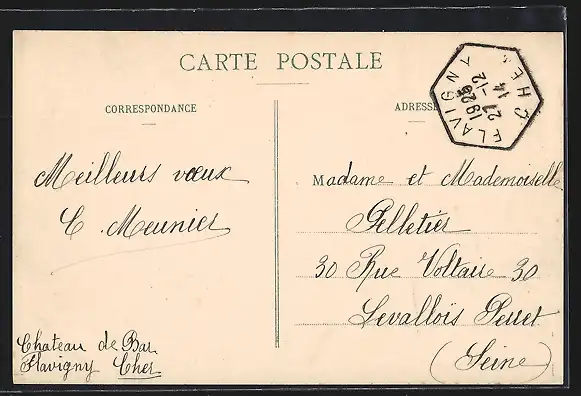 CARTE POSTALE
CORRESPONDANCE
ADRESSE
FLAVIGNY
CHER
14
27-12
1925
Meilleurs vœux
C. Meunier
Chateau de Bar
Flavigny Cher
Madame et Mademoiselle
Pelletier
30 Rue Voltaire 30
Levallois Perret
(Seine)